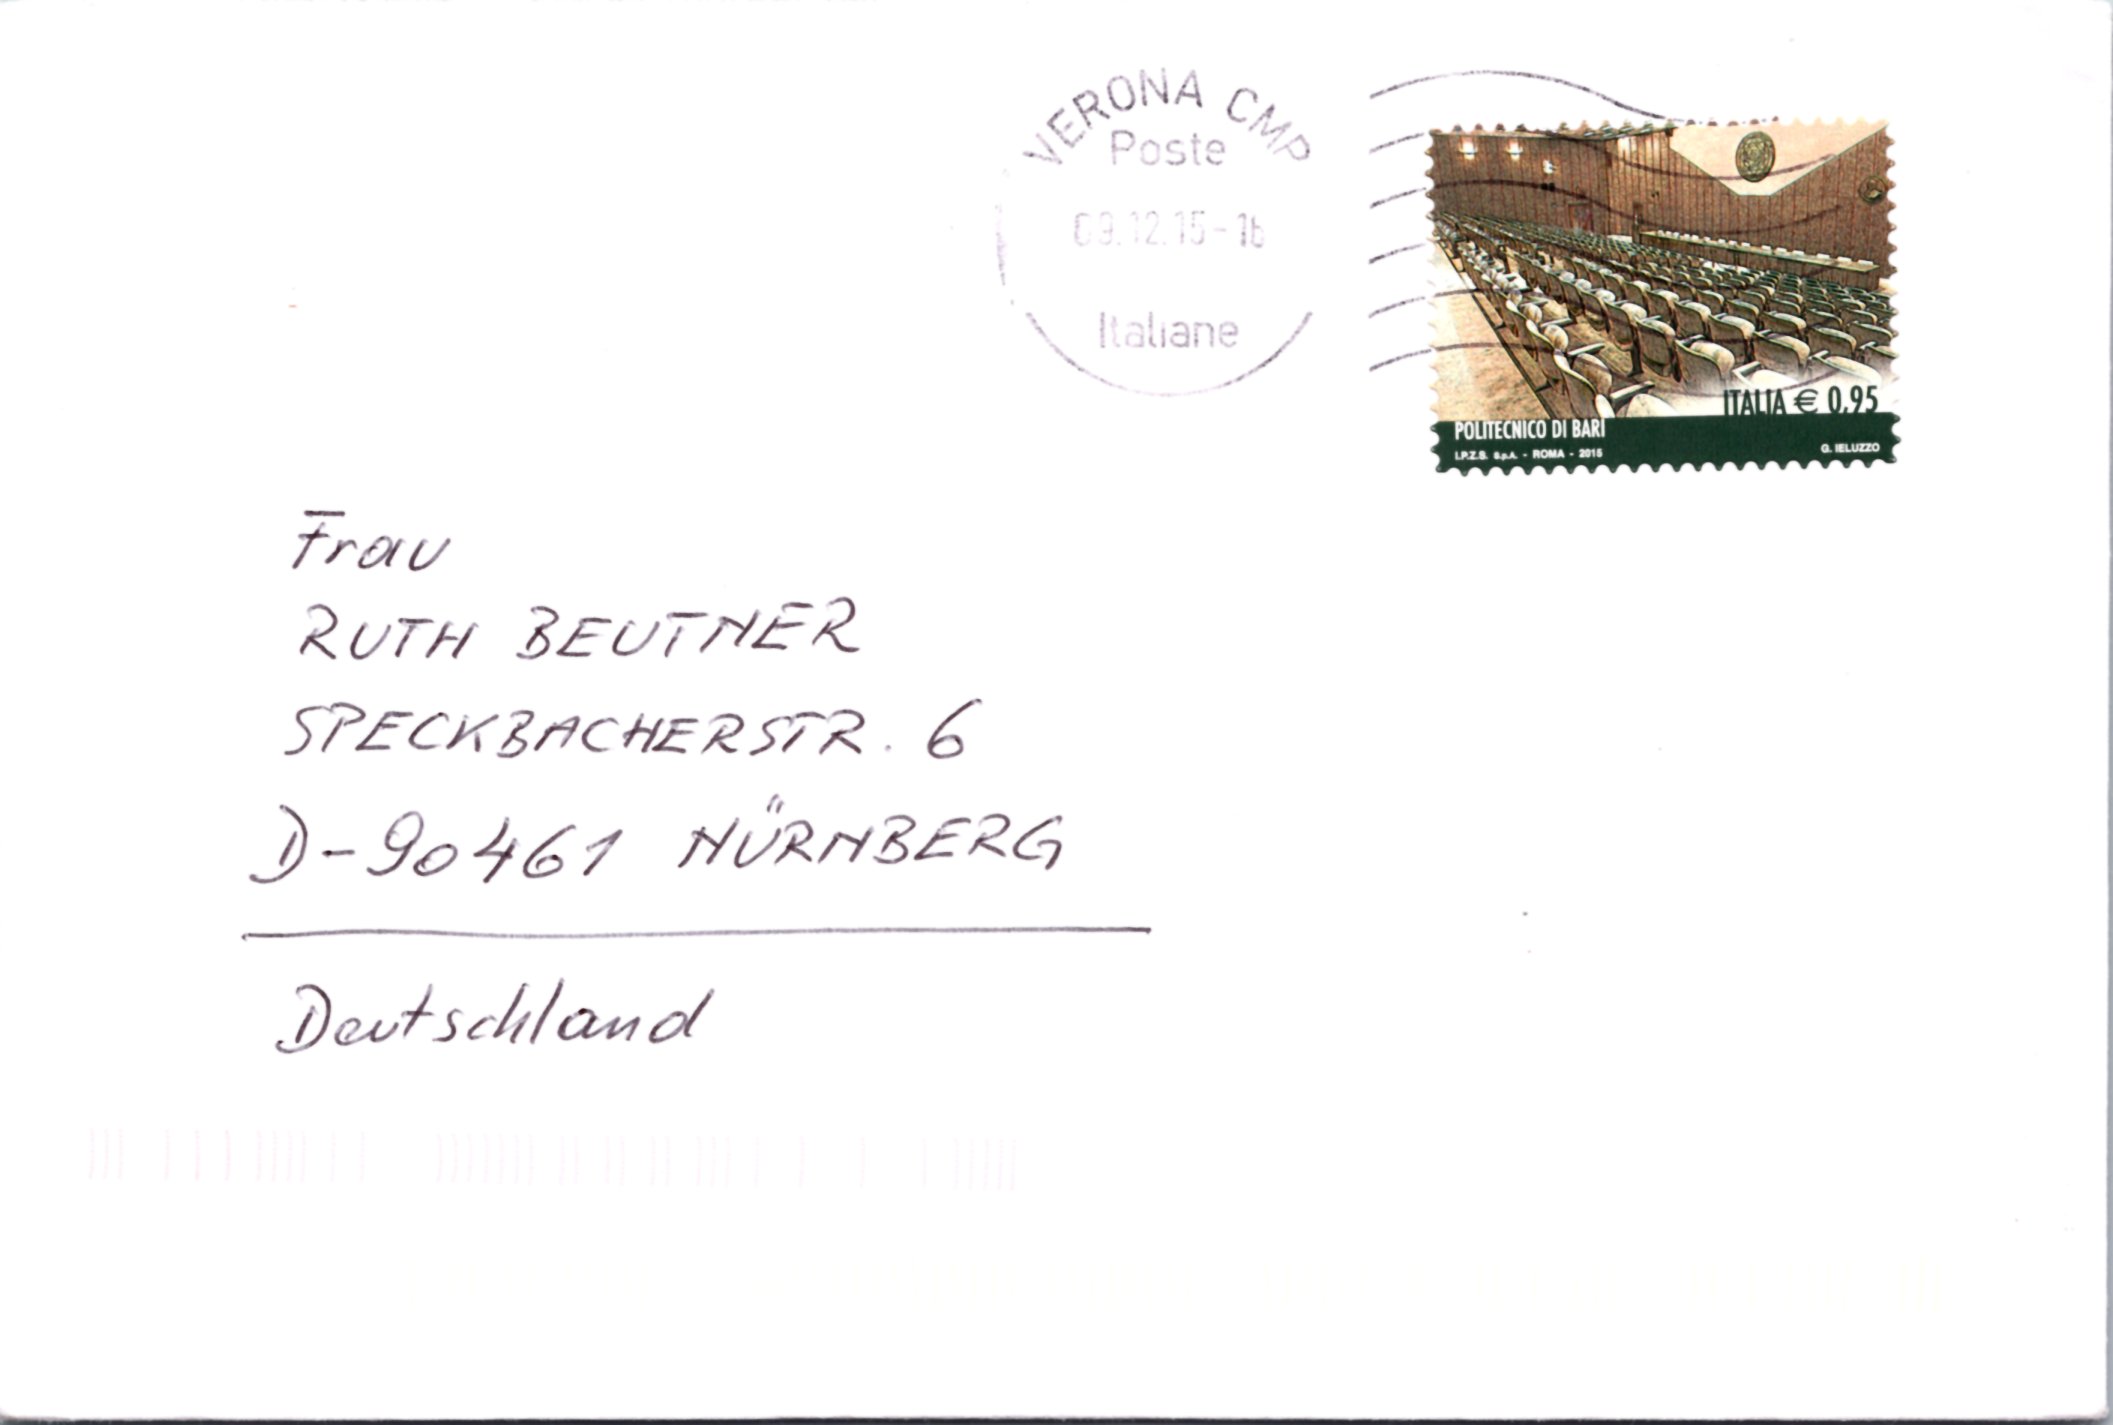 VERONA CMP
Poste
09.12.15-16
Italiane
ITALIA € 0,95
POLITECNICO DI BARI
I.P.Z.S. S.p.A. - ROMA - 2015
G. IELUZZO
Frau
RUTH BEUTNER
SPECKBACHERSTR. 6
D-90461 NÜRNBERG
Deutschland